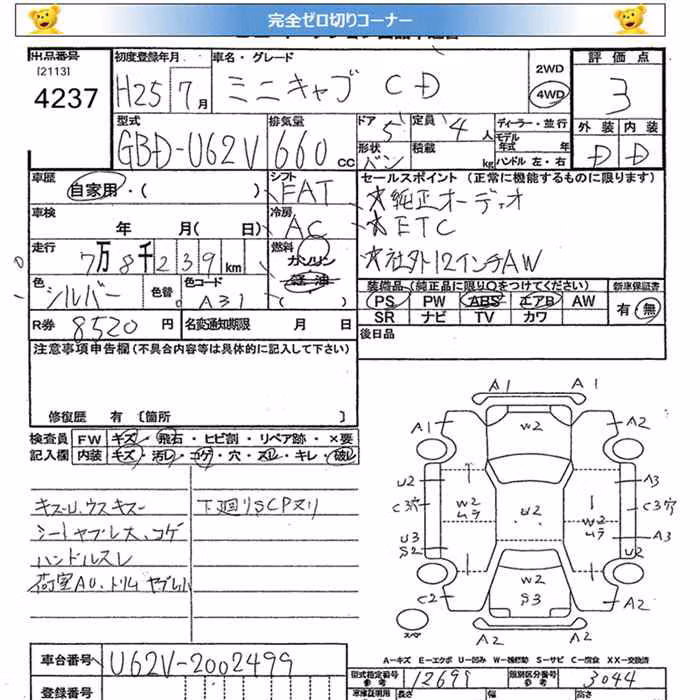 完全ゼロ切りコーナー
出品番号
[2113]
4237
初度登録年月
H25 7月
車名・グレード
ミニキャブ CD
2WD
4WD
評価点
3
外装 内装
D D
型式
GBD-U62V
排気量
660 CC
ドア
5
定員
4人
ディーラー・並行
モデル年式 年
ハンドル 左・右
形状
バン
積載
kg
車歴
自家用・( )
シフト
FAT
セールスポイント (正常に機能するものに限ります)
☆純正オーディオ
☆ETC
☆社外12インチAW
車検
年 月( 日)
冷房
AC
走行
7万8千239km
燃料
ガソリン
軽油
( )
色
シルバー
色替
色コード
A31
装備品(純正品に限り○をつけてください)
PS PW ABS エアB AW
SR ナビ TV カワ
新車保証書
有・無
R券 8520円
名変通知期限 月 日
後日品
注意事項申告欄(不具合内容等は具体的に記入して下さい)
修復歴 有〔箇所 〕
検査員記入欄
FW キズ・飛石・ヒビ割・リペア跡・×要
内装 キズ・汚レ・コゲ・穴・スレ・キレ・破レ
キズU、ウスキズ
シートヤブレス、コゲ
ハンドルスレ
荷室AU、トリムヤブレ
下廻りSCPヌリ
A1 A1
A1 W2 A2
U2 A3
C3穴 W2 ムラ U2 W2 ムラ C3穴
U3 S2 A3
U2
W2
C2 S3 A2
A2 A2
スペア
A-キズ E-エクボ U-凹み W-補修跡 S-サビ C-腐食 XX-交換済
車台番号
U62V-2002499
型式指定番号
参考
12699
類別区分番号
参考
3044
登録番号
車庫証明用
参考
長さ
幅
高さ